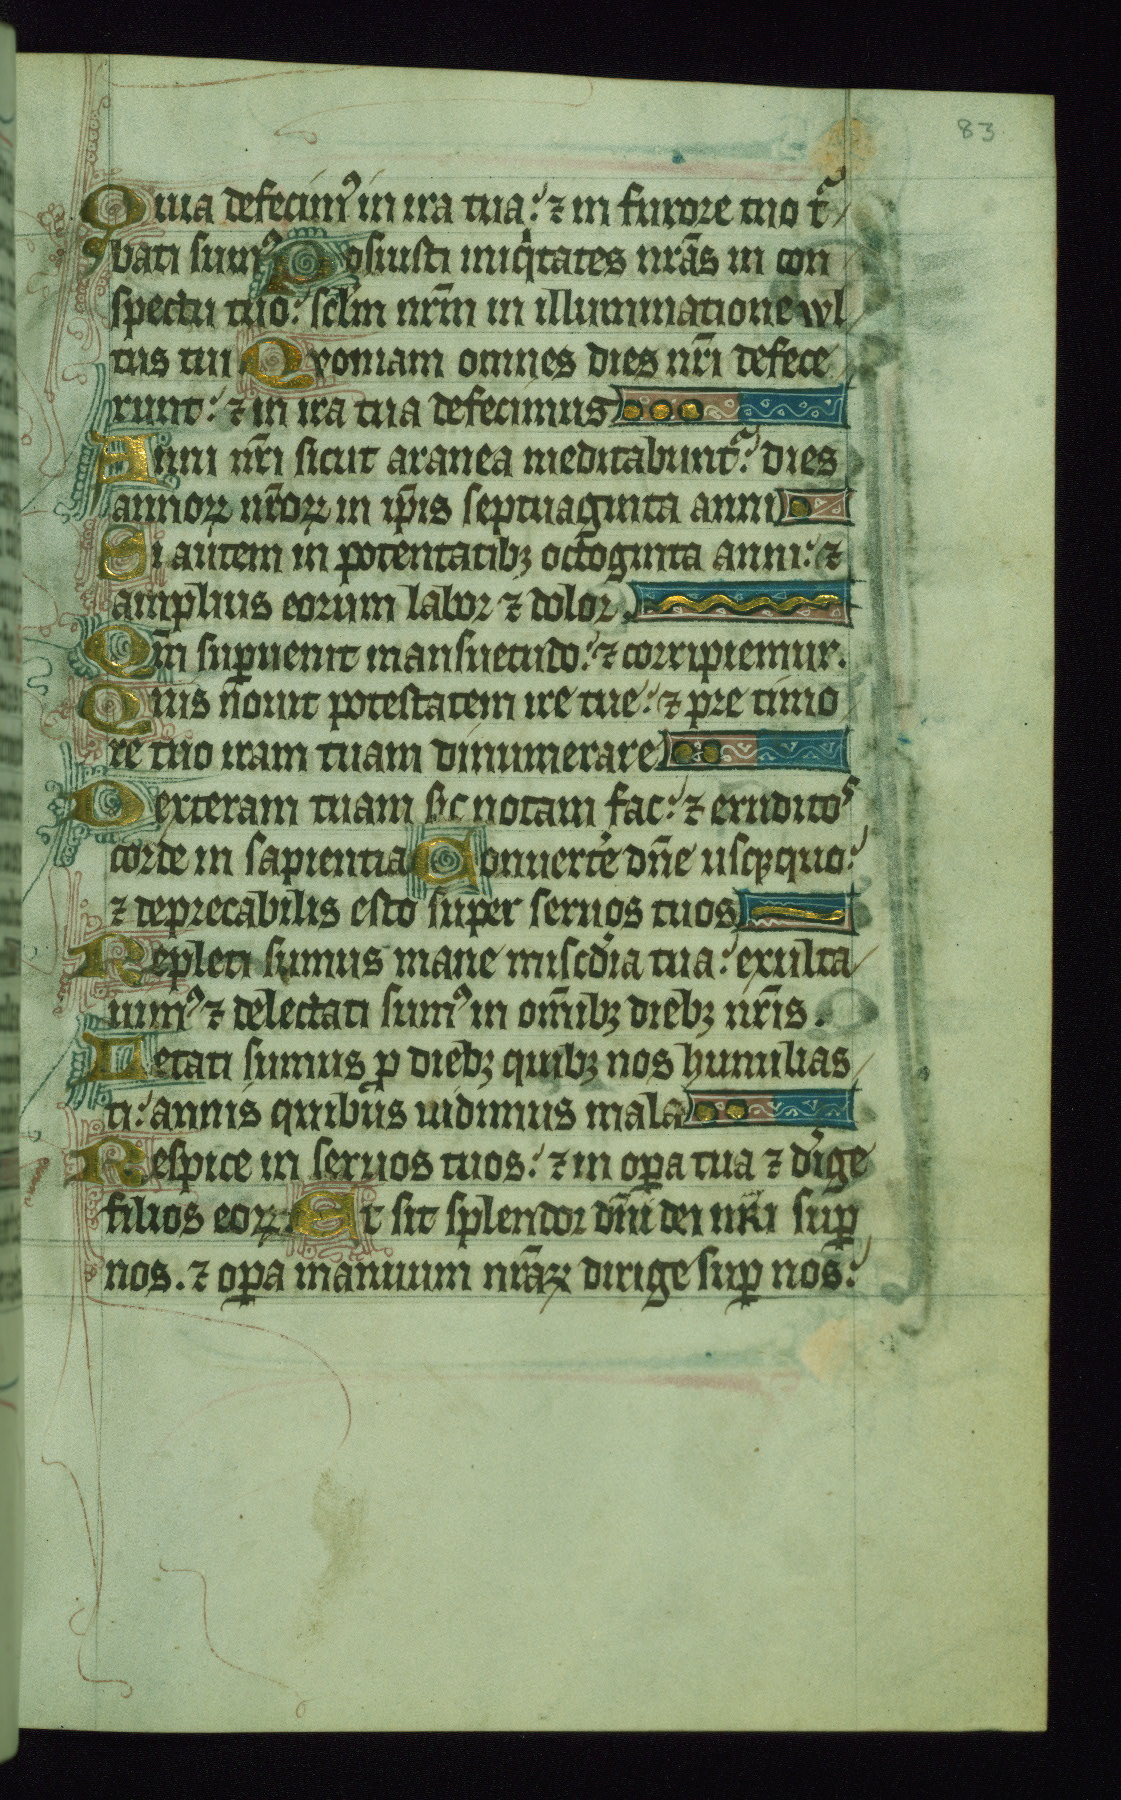 83
Quia defecim᷒ in ira tua: ⁊ in furore tuo tͣ
bati sum᷒ Posuisti iniqͥtates nr̄as in con
spectu tuo: sc̄lm nr̄m in illuminatione wl
tus tui Qvoniam omnes dies nr̄i defece
runt: ⁊ in ira tua defecimus
Anni nr̄i sicut aranea meditabuntͣ: dies
annoꝝ nr̄oꝝ in ip̄is septuaginta anni
Si autem in potentatibꝫ octoginta anni: ⁊
amplius eorum labor ⁊ dolor
Qm̄ suꝑuenit mansuetudo: ⁊ corripiemur.
Quis nouit potestatem ire tue: ⁊ pre timo
re tuo iram tuam dinumerare
Dexteram tuam sic notam fac: ⁊ eruditoˢ
corde in sapientia Conuerte᷒ dn̄e usqꝫquo:
⁊ deprecabilis esto super seruos tuos
Repleti sumus mane misc̄dia tua: exulta
uim᷒ ⁊ delectati sum᷒ in om̄ibꝫ diebꝫ nr̄is.
Letati sumus ꝓ diebꝫ quibꝫ nos humilias
ti: annis quibus uidimus mala
Respice in seruos tuos: ⁊ in oꝑa tua ⁊ dͥrige
filios eoꝝ Et sit splendor dn̄i dei nr̄i suꝑ
nos. ⁊ oꝑa manuum nr̄aꝝ dirige suꝑ nos: